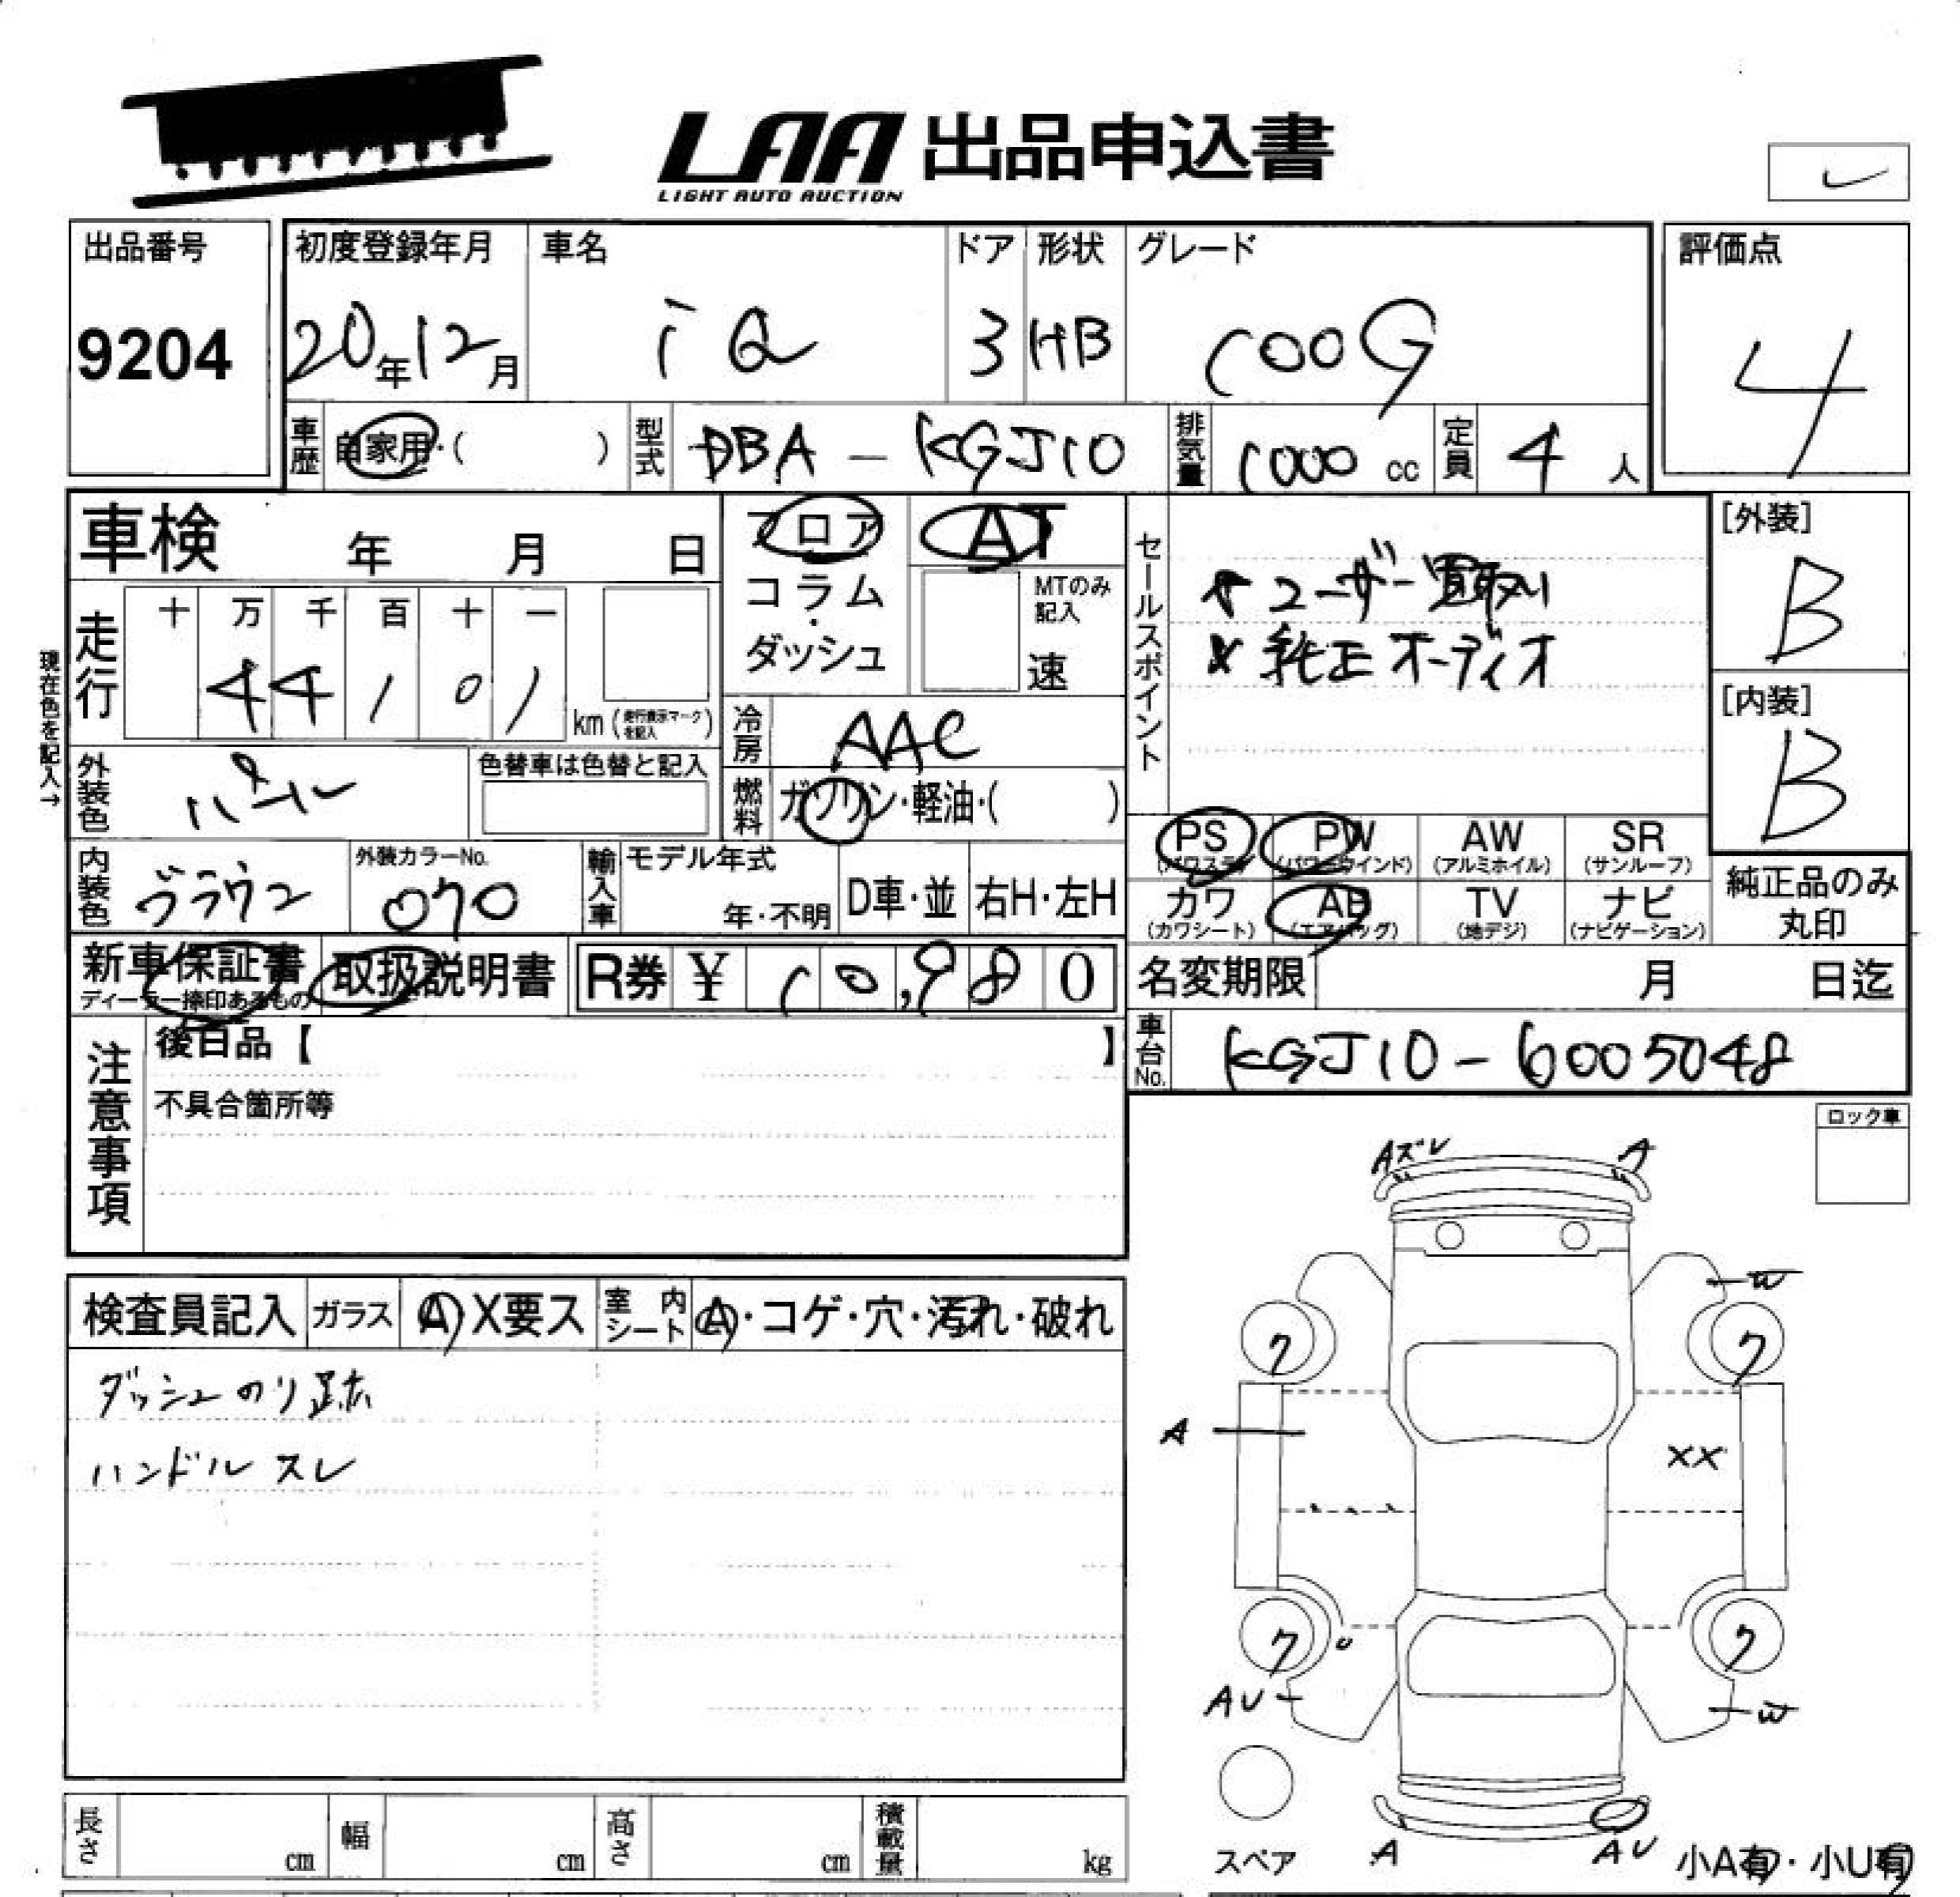 LAA 出品申込書
LIGHT AUTO AUCTION
出品番号
9204
初度登録年月
20年12月
車名
iQ
ドア
3
形状
HB
グレード
100G
評価点
4
車歴
自家用・( )
型式
DBA - KGJ10
排気量
1000 cc
定員
4 人
車検 年 月 日
フロア
コラム
ダッシュ
AT
MTのみ
記入
速
セールスポイント
ユーザー買取り
純正オーディオ
[外装]
B
[内装]
B
現在色を記入→
走行
十 万 千 百 十 一
4 4 1 0 1
km (走行表示マークを記入)
冷房
AAC
外装色
パール
色替車は色替と記入
燃料
ガソリン・軽油・( )
PS PW AW SR
(パワステ) (パワーウインド) (アルミホイル) (サンルーフ)
カワ AB TV ナビ
(カワシート) (エアバッグ) (地デジ) (ナビゲーション)
純正品のみ
丸印
内装色
ブラウン
外装カラーNo.
070
輸入車
モデル年式
年・不明
D車・並
右H・左H
新車保証書
ディーラー捺印あるもの
取扱説明書
R券 ¥ 10,980
名変期限 月 日迄
車台No.
KGJ10-6005048
注意事項
後日品【 】
不具合箇所等
ロック車
検査員記入
ガラス
A X要ス
室内シート
A・コゲ・穴・汚れ・破れ
ダッシュのり跡
ハンドルスレ
Aズレ A
W
ク ク
A
XX
ク ク
AU
W
スペア
A
AU
小A有・小U有
長さ cm
幅 cm
高さ cm
積載量 kg